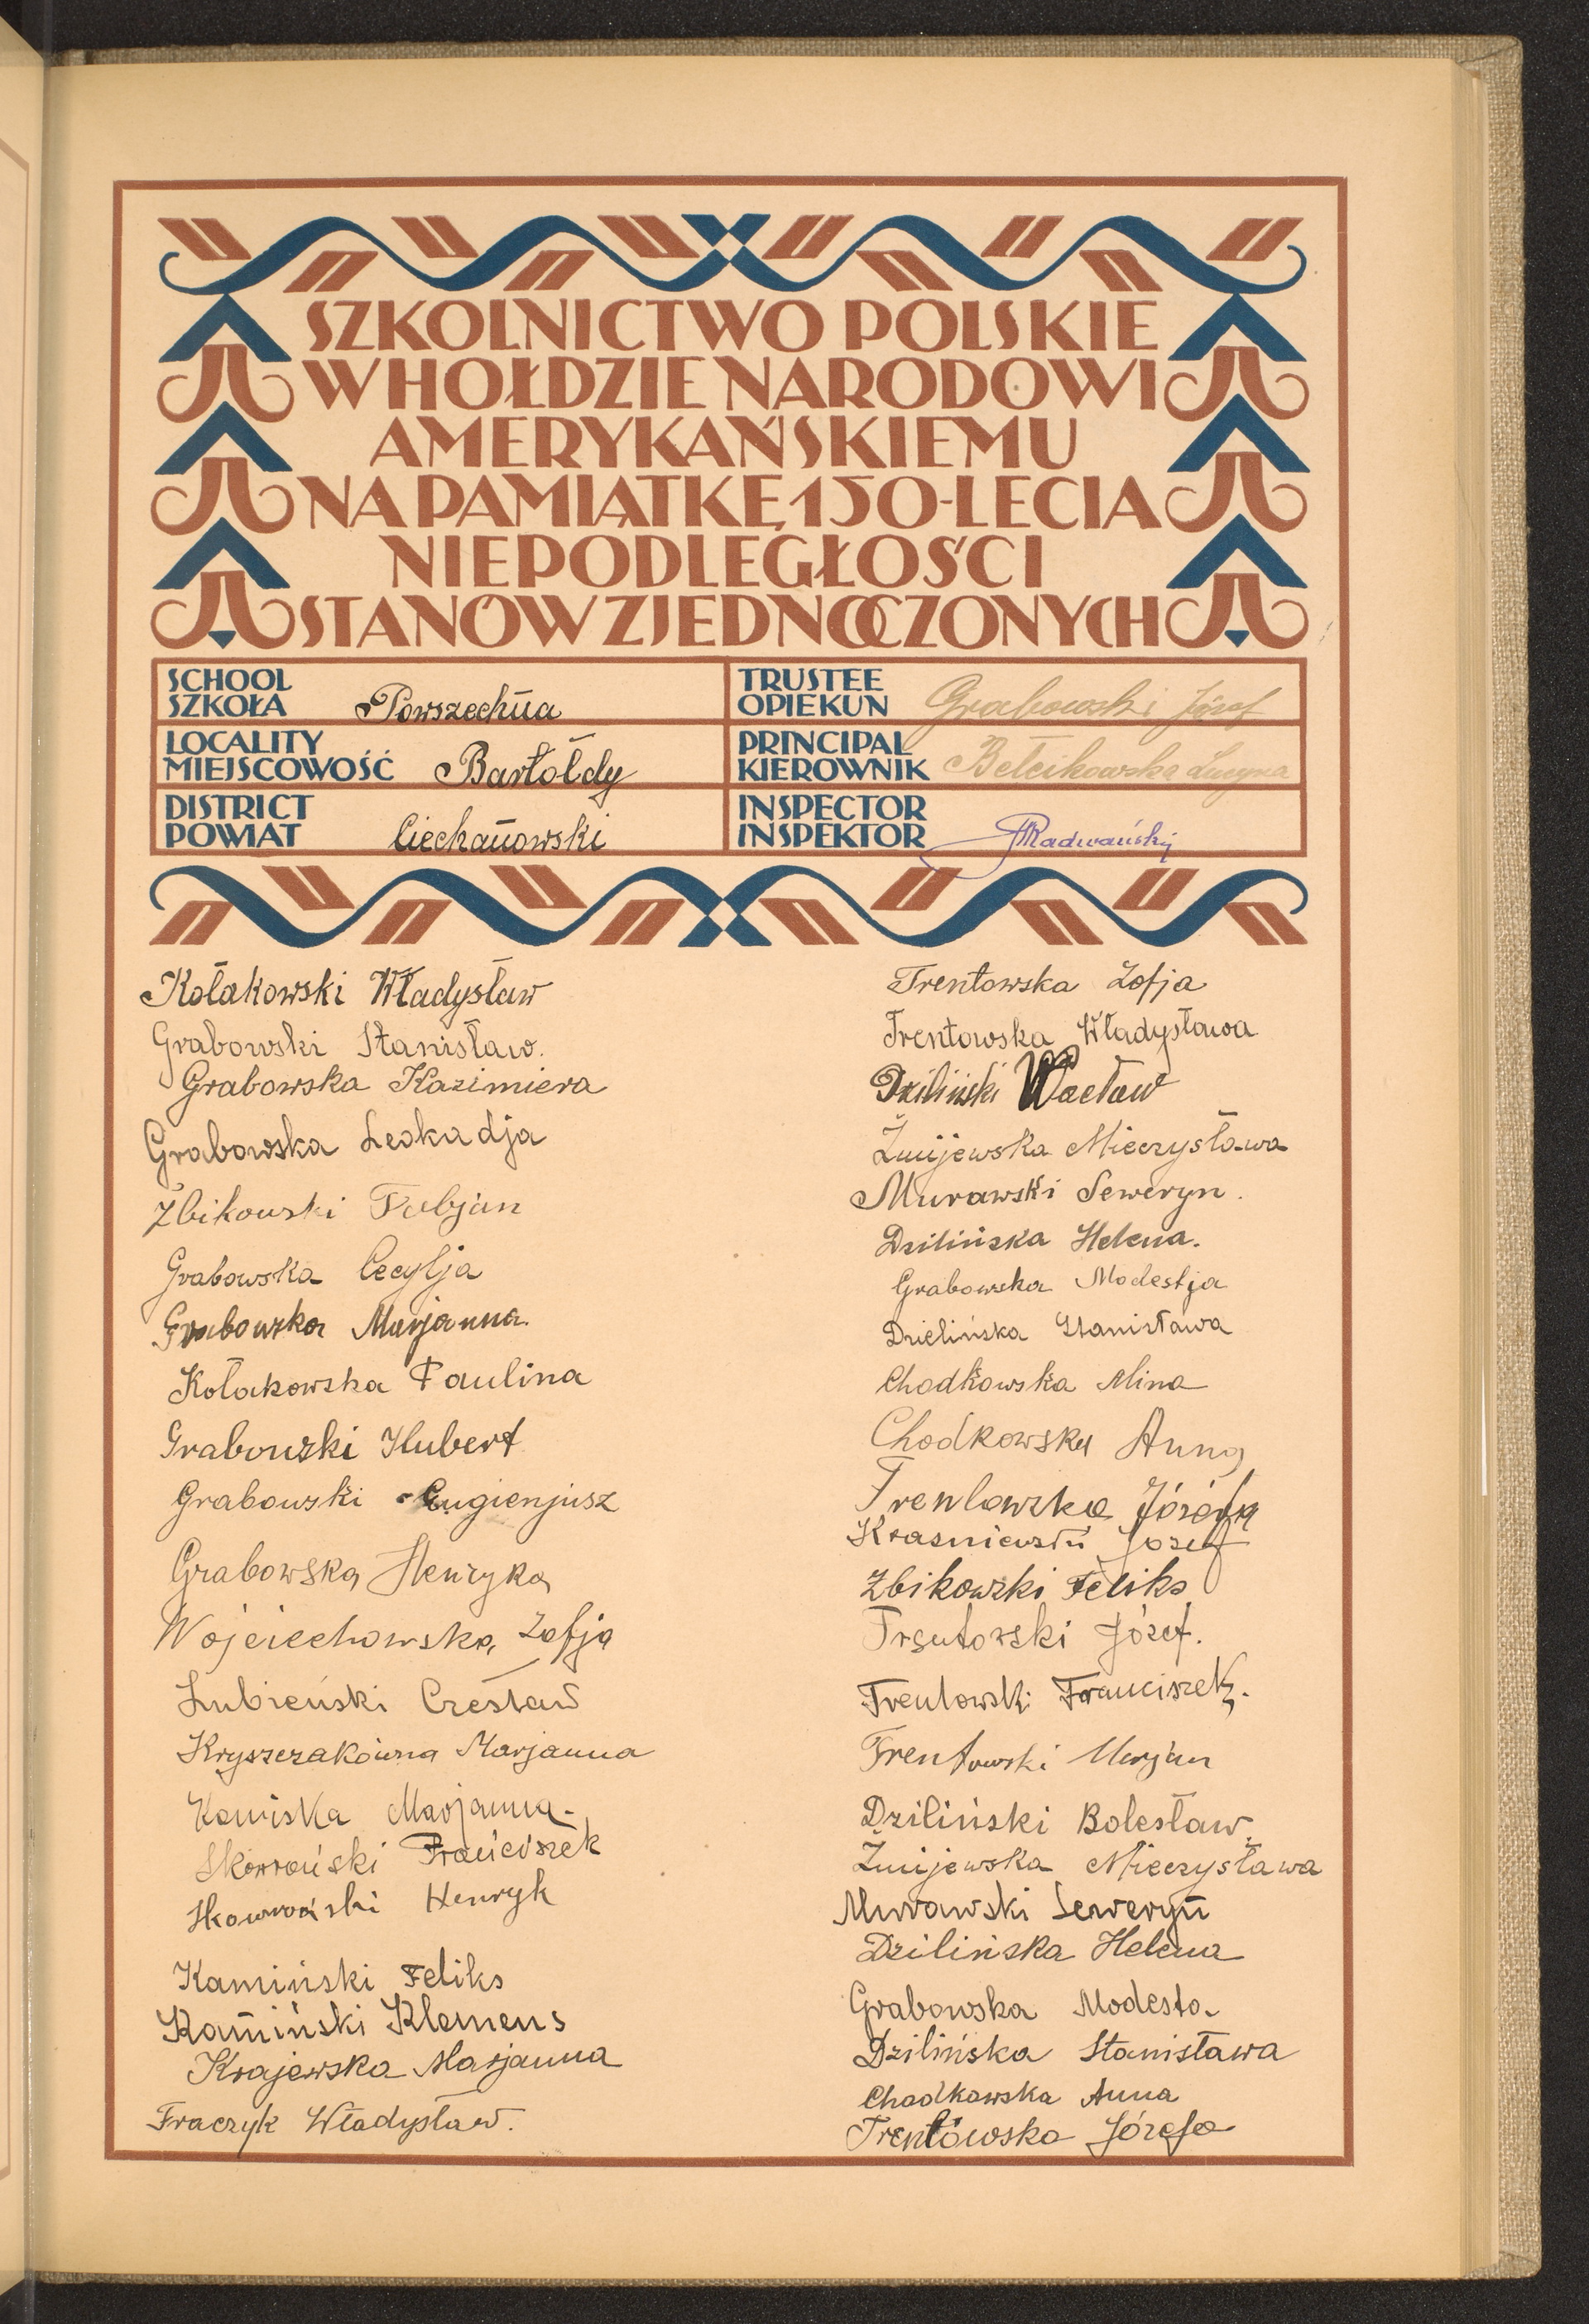 SZKOLNICTWO POLSKIE
W HOŁDZIE NARODOWI
AMERYKAŃSKIEMU
NA PAMIĄTKĘ 150-LECIA
NIEPODLEGŁOŚCI
STANÓW ZJEDNOCZONYCH
SCHOOL
SZKOŁA Powszechna
TRUSTEE
OPIEKUN Grabowski Józef
LOCALITY
MIEJSCOWOŚĆ Bartołdy
PRINCIPAL
KIEROWNIK Bełcikowska Lucyna
DISTRICT
POWIAT Ciechanowski
INSPECTOR
INSPEKTOR Radwański
Kołakowski Władysław
Grabowski Stanisław.
Grabowska Kazimiera
Grabowska Leokadja
Zbikowski Fabjan
Grabowska Cecylja
Grabowska Marjanna.
Kołakowska Paulina
Grabowski Hubert
Grabowski Eugienjusz
Grabowska Henryka
Wojciechowska Zofja
Lubieński Czesław
Kryszczakówna Marjanna
Kamiska Marjanna-
Skowroński Franciszek
Skowroński Henryk
Kamiński Feliks
Kamiński Klemens
Krajewska Marjanna
Fraczyk Władysław.
Trentowska Zofja
Trentowska Władysława
Dziliński Wacław
Żmijewska Mieczysława
Murawski Seweryn.
Dzilińska Helena.
Grabowska Modestja
Dzielińska Stanisława
Chodkowska Alina
Chodkowska Anna
Trentowska Józefa
Józef
Zbikowski Feliks
Trentowski Józef.
Trentowski Franciszek.
Trentowski Marjan
Dziliński Bolesław
Żmijewska Mieczysława
Murawski Seweryn
Dzilińska Helena
Grabowska Modesta
Dzilińska Stanisława
Chodkowska Anna
Trentowska Józefa